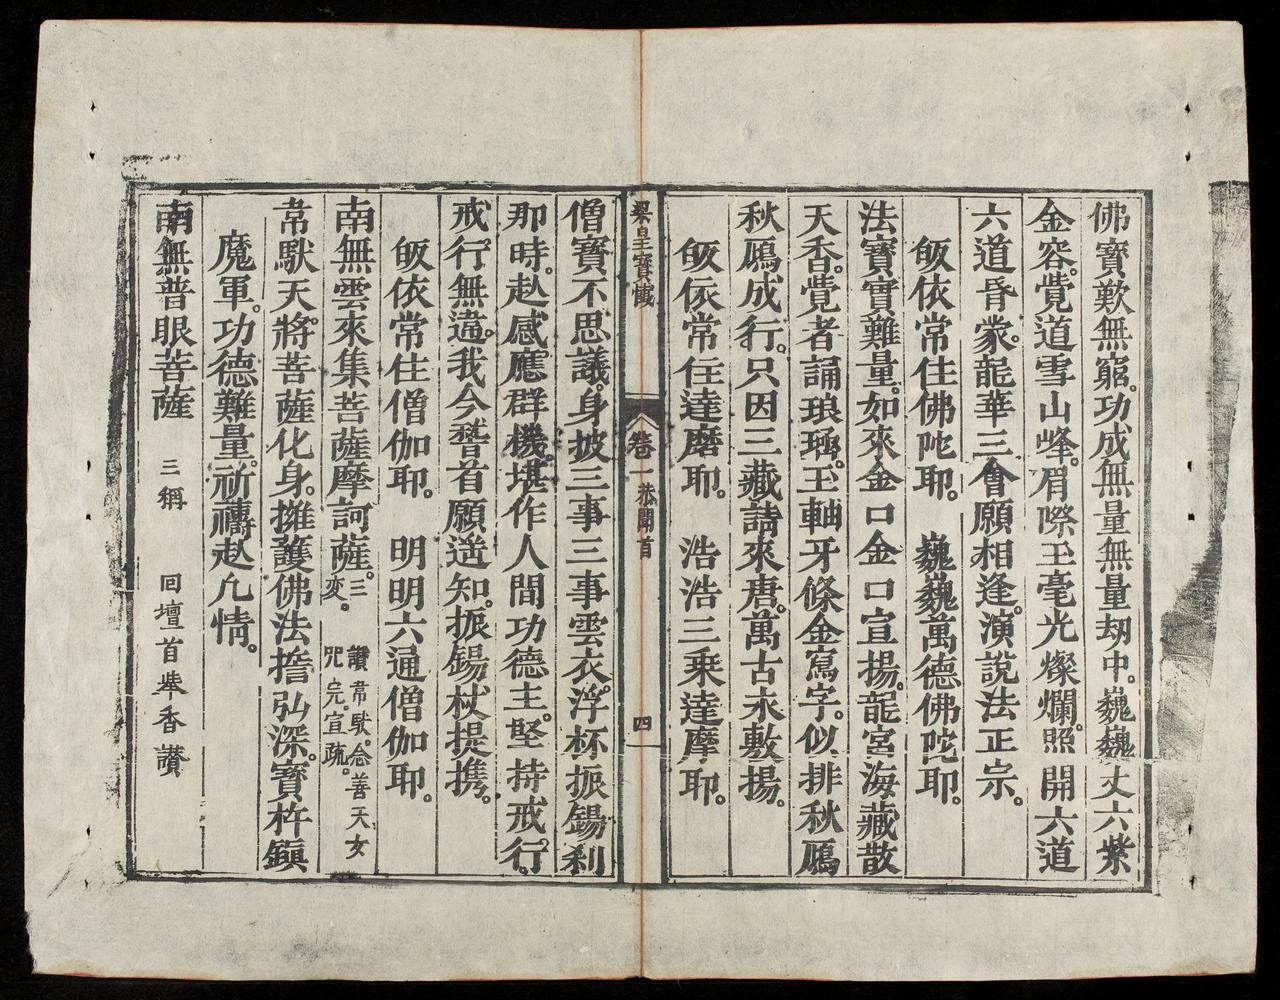 佛寶歎無窮。功成無量無量劫中。巍巍丈六紫
金容。覺道雪山峰。眉際玉毫光燦爛。照開六道
六道昏蒙。龍華三會願相逢。演說法正宗。
皈依常住佛陀耶。　巍巍萬德佛陀耶。
法寶實難量。如來金口金口宣揚。龍宮海藏散
天香。覺者誦琅函。玉軸牙條金寫字。似排秋鴈
秋鴈成行。只因三藏請來唐。萬古永敷揚。
皈依常住達磨耶。　浩浩三乘達摩耶。
梁皇寶懺　卷一　恭聞首　四
僧寶不思議。身披三事三事雲衣。浮杯振錫刹
那時。赴感應群機。堪作人間功德主。堅持戒行。
戒行無違。我今稽首願遙知。振錫杖提携。
皈依常住僧伽耶。　明明六通僧伽耶。
南無雲來集菩薩摩訶薩。三変。　讚韋馱。念善天女咒完。宣疏。
韋馱天將菩薩化身。擁護佛法誓弘深。寶杵鎮
魔軍。功德難量。祈禱赴凢情。
南無普眼菩薩　三稱　回壇首舉香讚